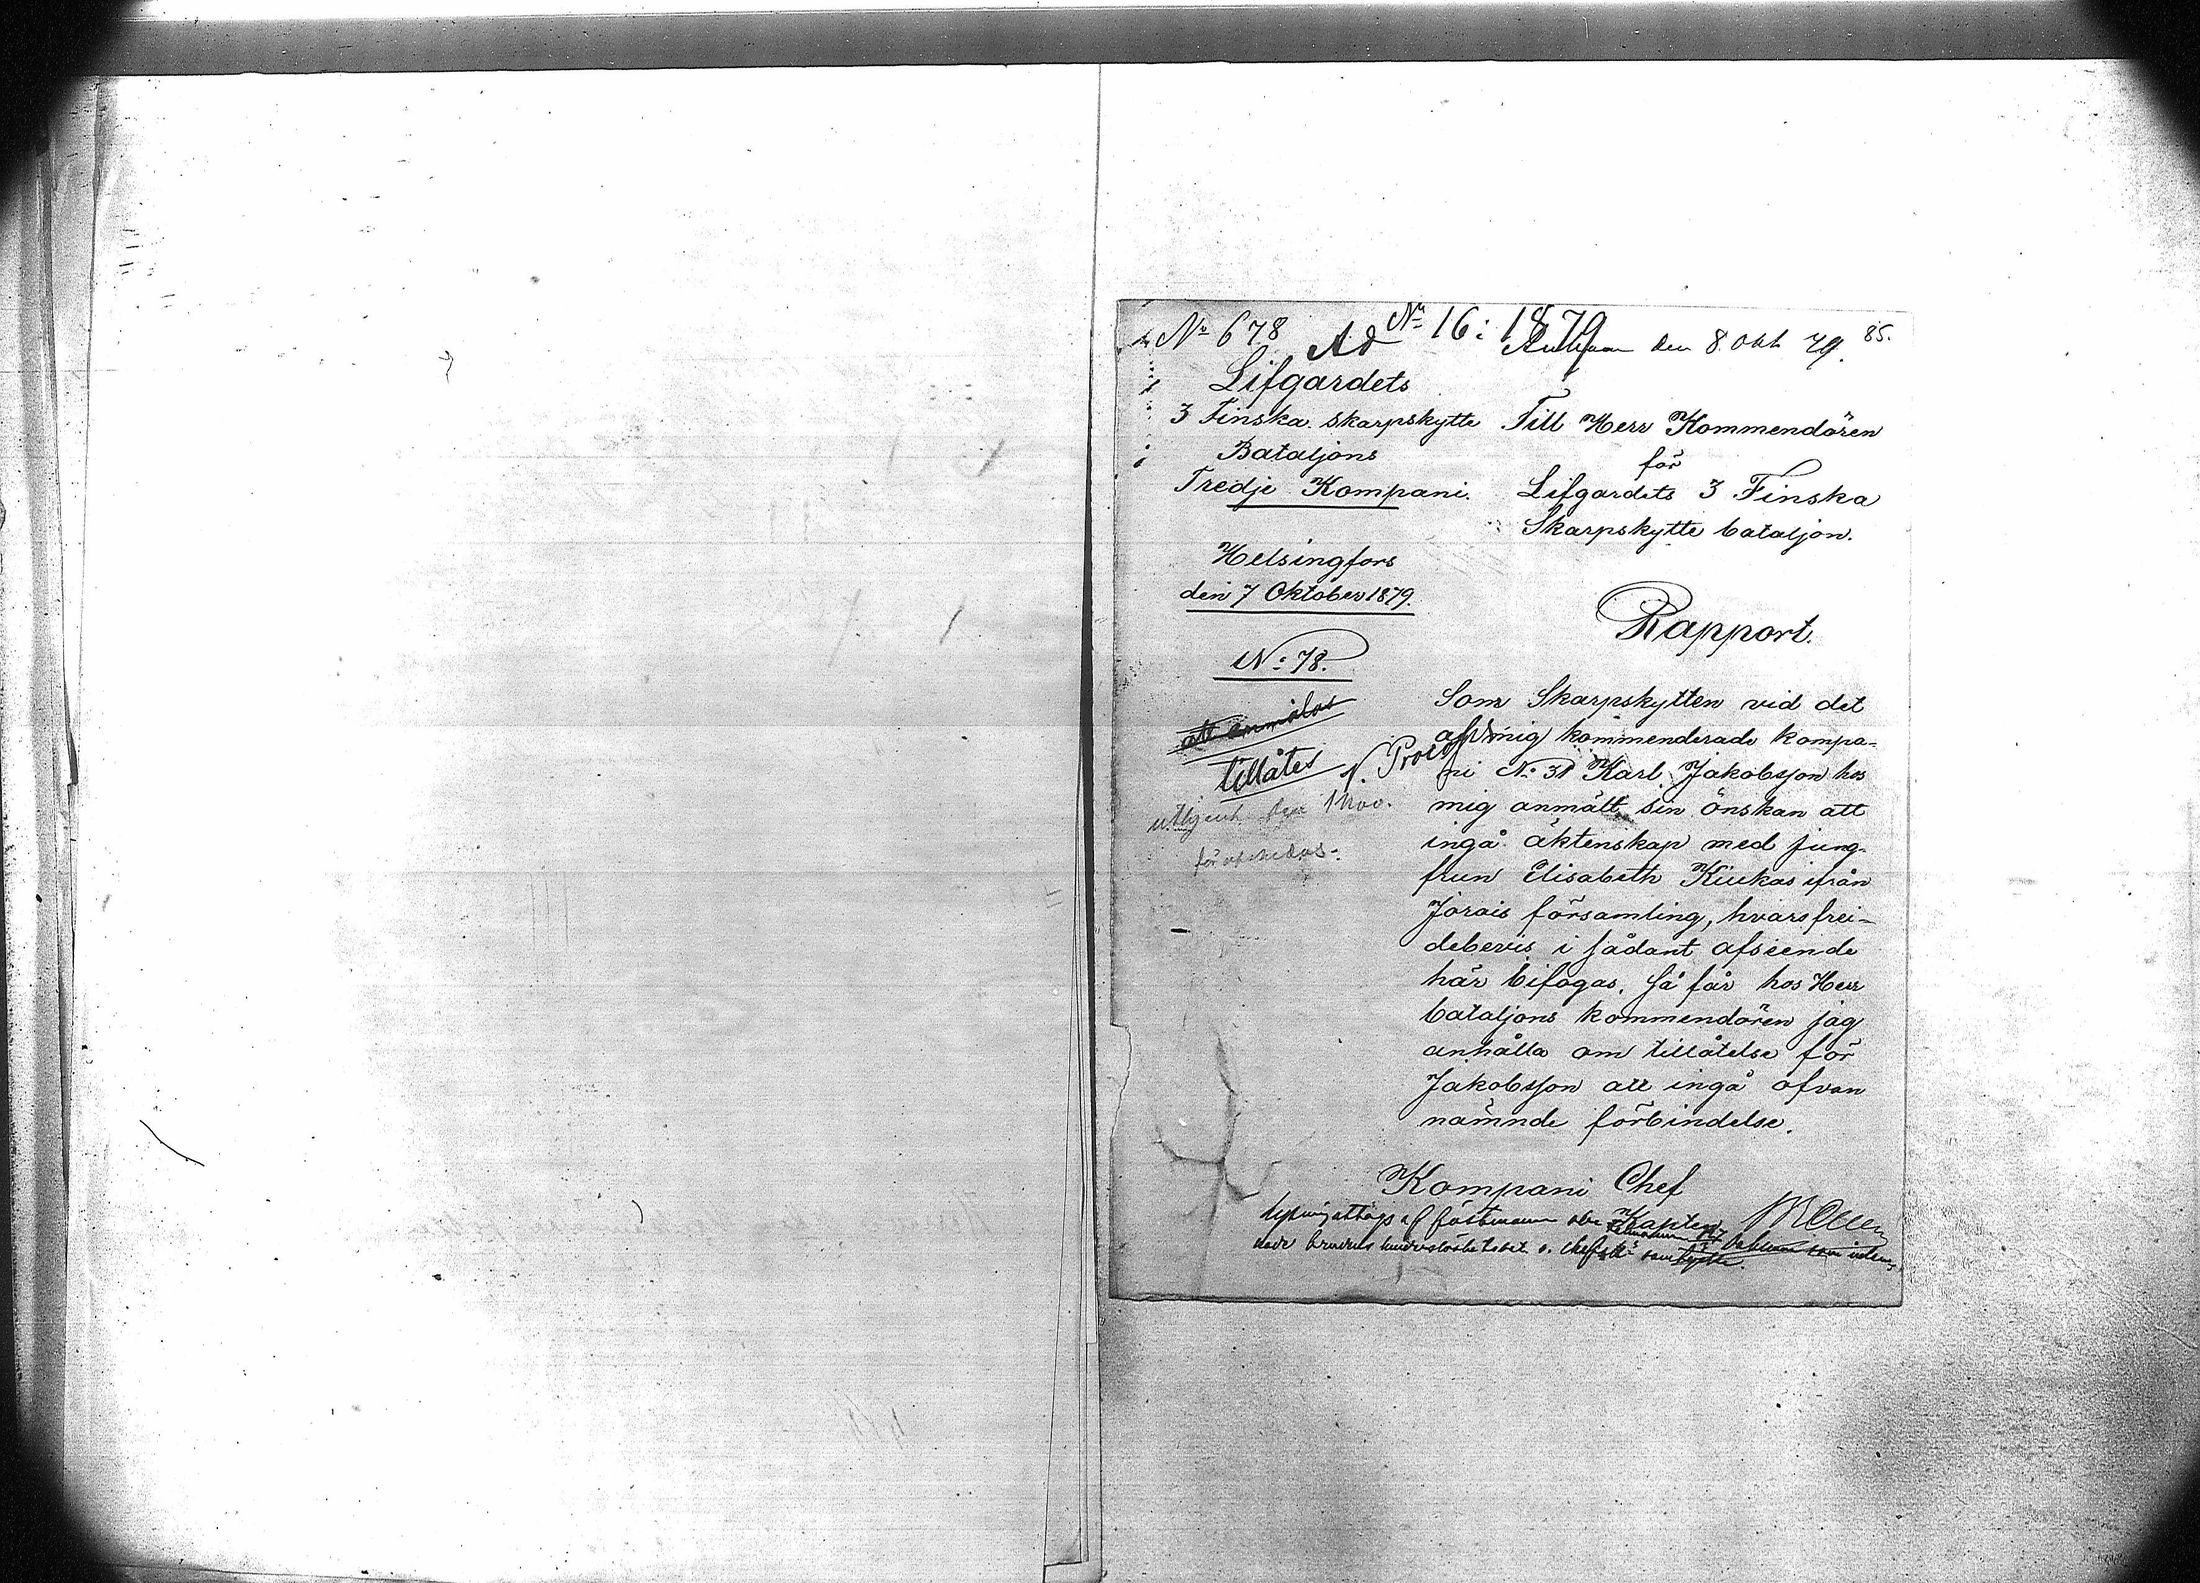 No 678
Ad No 16: 1879
den 8. Okt 79.
85.
Lifgardets
3 Finska skarpskytte
Bataljons
Tredje Kompani.
Helsingfors
den 7 Oktober 1879.
No: 78.
Till Herr Kommendören
för
Lifgardets 3 Finska
Skarpskytte bataljon.
Rapport.
tillåtes
den 1 Nov.
Som Skarpskytten vid det
af mig kommenderade kompa-
ni No: 31 Karl Jakobsson hos
mig anmält sin önskan att
ingå äktenskap med jung-
frun Elisabeth Kiukas ifrån
Jorois församling, hvars frei-
debevis i sådant afseende
här bifogas, så får hos Herr
bataljons kommendören jag
anhålla om tillåtelse för
Jakobsson att ingå ofvan
nämnde förbindelse.
Kompani Chef
Kapten